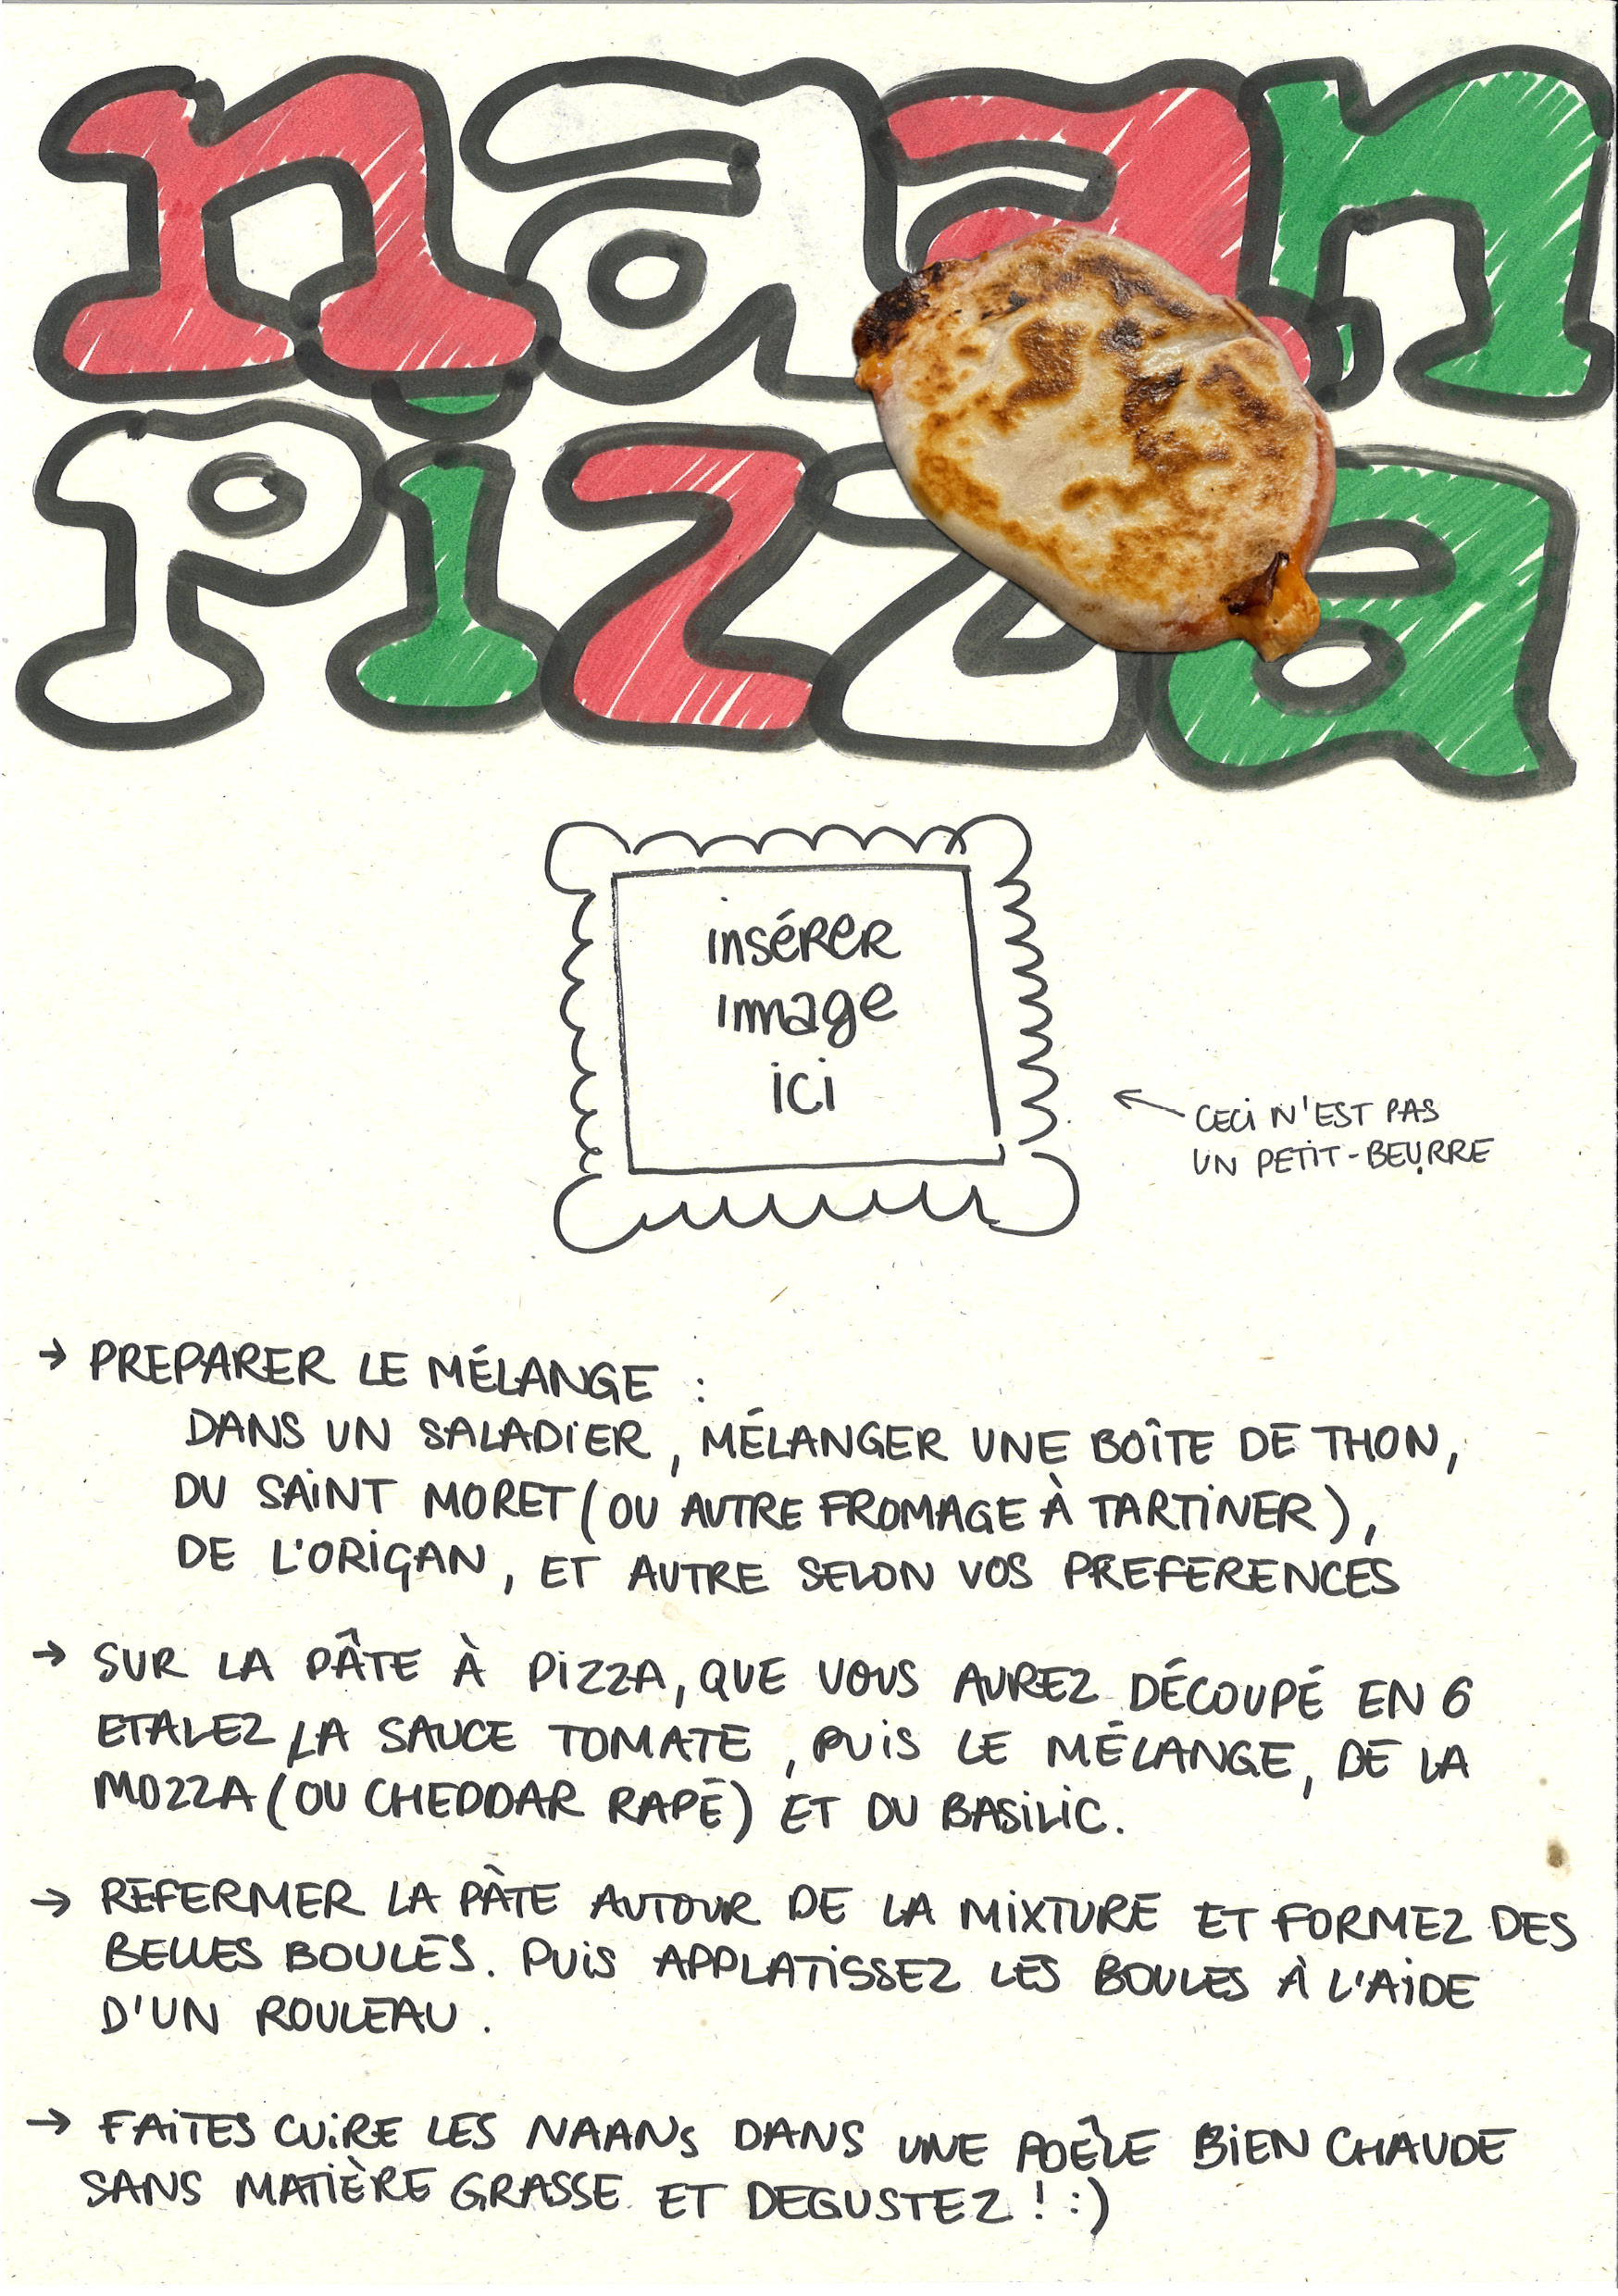 naan
Pizza
insérer
image
ici
CECI N'EST PAS
UN PETIT-BEURRE
→ PREPARER LE MÉLANGE :
DANS UN SALADIER, MÉLANGER UNE BOÎTE DE THON,
DU SAINT MORET (OU AUTRE FROMAGE À TARTINER),
DE L'ORIGAN, ET AUTRE SELON VOS PREFERENCES
→ SUR LA PÂTE À PIZZA, QUE VOUS AUREZ DÉCOUPÉ EN 6
ETALEZ LA SAUCE TOMATE, PUIS LE MÉLANGE, DE LA
MOZZA (OU CHEDDAR RAPÉ) ET DU BASILIC.
→ REFERMER LA PÂTE AUTOUR DE LA MIXTURE ET FORMEZ DES
BELLES BOULES. PUIS APPLATISSEZ LES BOULES À L'AIDE
D'UN ROULEAU.
→ FAITES CUIRE LES NAANS DANS UNE POÊLE BIEN CHAUDE
SANS MATIÈRE GRASSE ET DEGUSTEZ ! :)